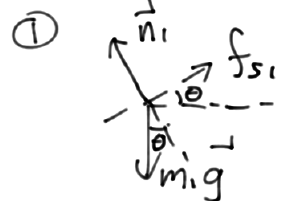 ① n⃗₁
fs₁
θ
θ
m₁g⃗